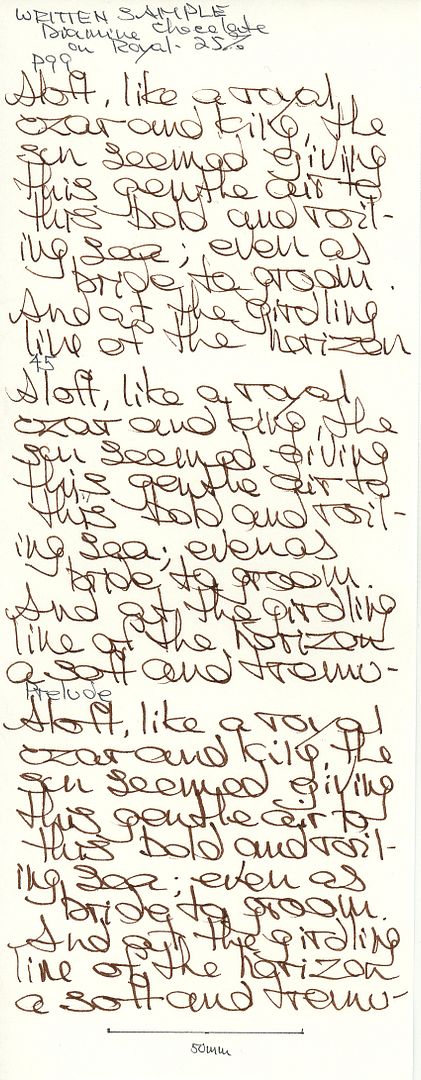 WRITTEN SAMPLE
Diamine Chocolate
on Royal. 25%
P99
Aloft, like a royal
czar and king, the
sun seemed giving
this gentle air to
this bold and roil-
ing sea; even as
bride to groom.
And at the girdling
line of the horizon
45
Aloft, like a royal
czar and king, the
sun seemed giving
this gentle air to
this bold and roil-
ing sea; even as
bride to groom.
And at the girdling
line of the horizon
a soft and tremu-
Prelude
Aloft, like a royal
czar and king, the
sun seemed giving
this gentle air to
this bold and roil-
ing sea; even as
bride to groom.
And at the girdling
line of the horizon
a soft and tremu-
50mm